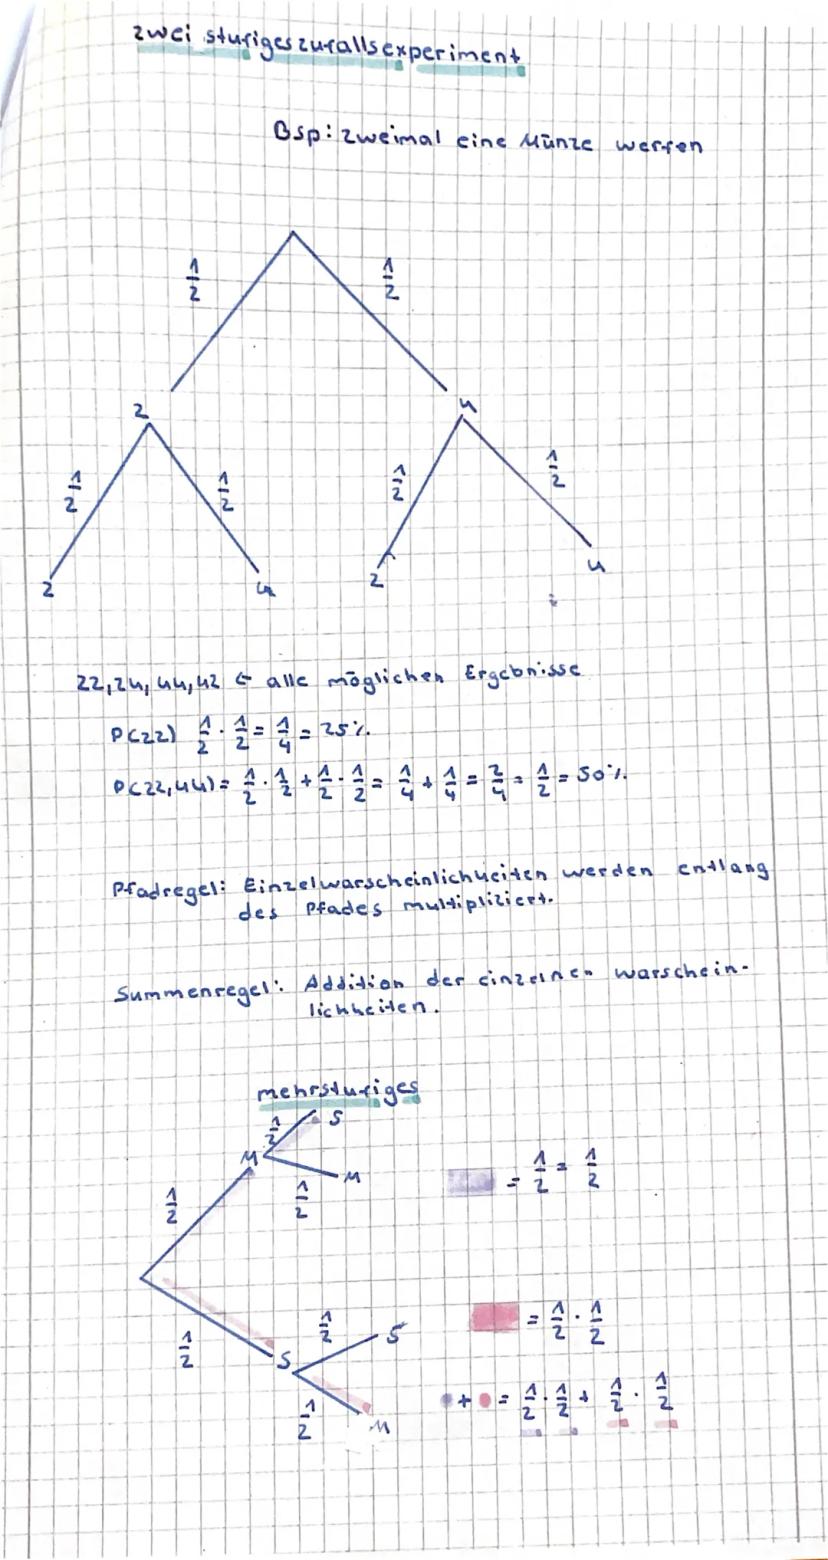 zwei stufiges zufallsexperiment
Bsp: zweimal eine Münze werfen
1/2 1/2
Z U
1/2 1/2 1/2 1/2
Z U Z U
ZZ, ZU, UU, UZ ← alle möglichen Ergebnisse
P(ZZ) 1/2 · 1/2 = 1/4 = 25%
P(ZZ, UU) = 1/2 · 1/2 + 1/2 · 1/2 = 1/4 + 1/4 = 2/4 = 1/2 = 50%
Pfadregel: Einzelwarscheinlichkeiten werden entlang
des Pfades multipliziert.
Summenregel: Addition der einzelnen warschein-
lichkeiten.
mehrstufiges
1/2 S
M
1/2 M
1/2
= 1/2 = 1/2
1/2
1/2 S
S
1/2 M
= 1/2 · 1/2
+ = 1/2 · 1/2 + 1/2 · 1/2